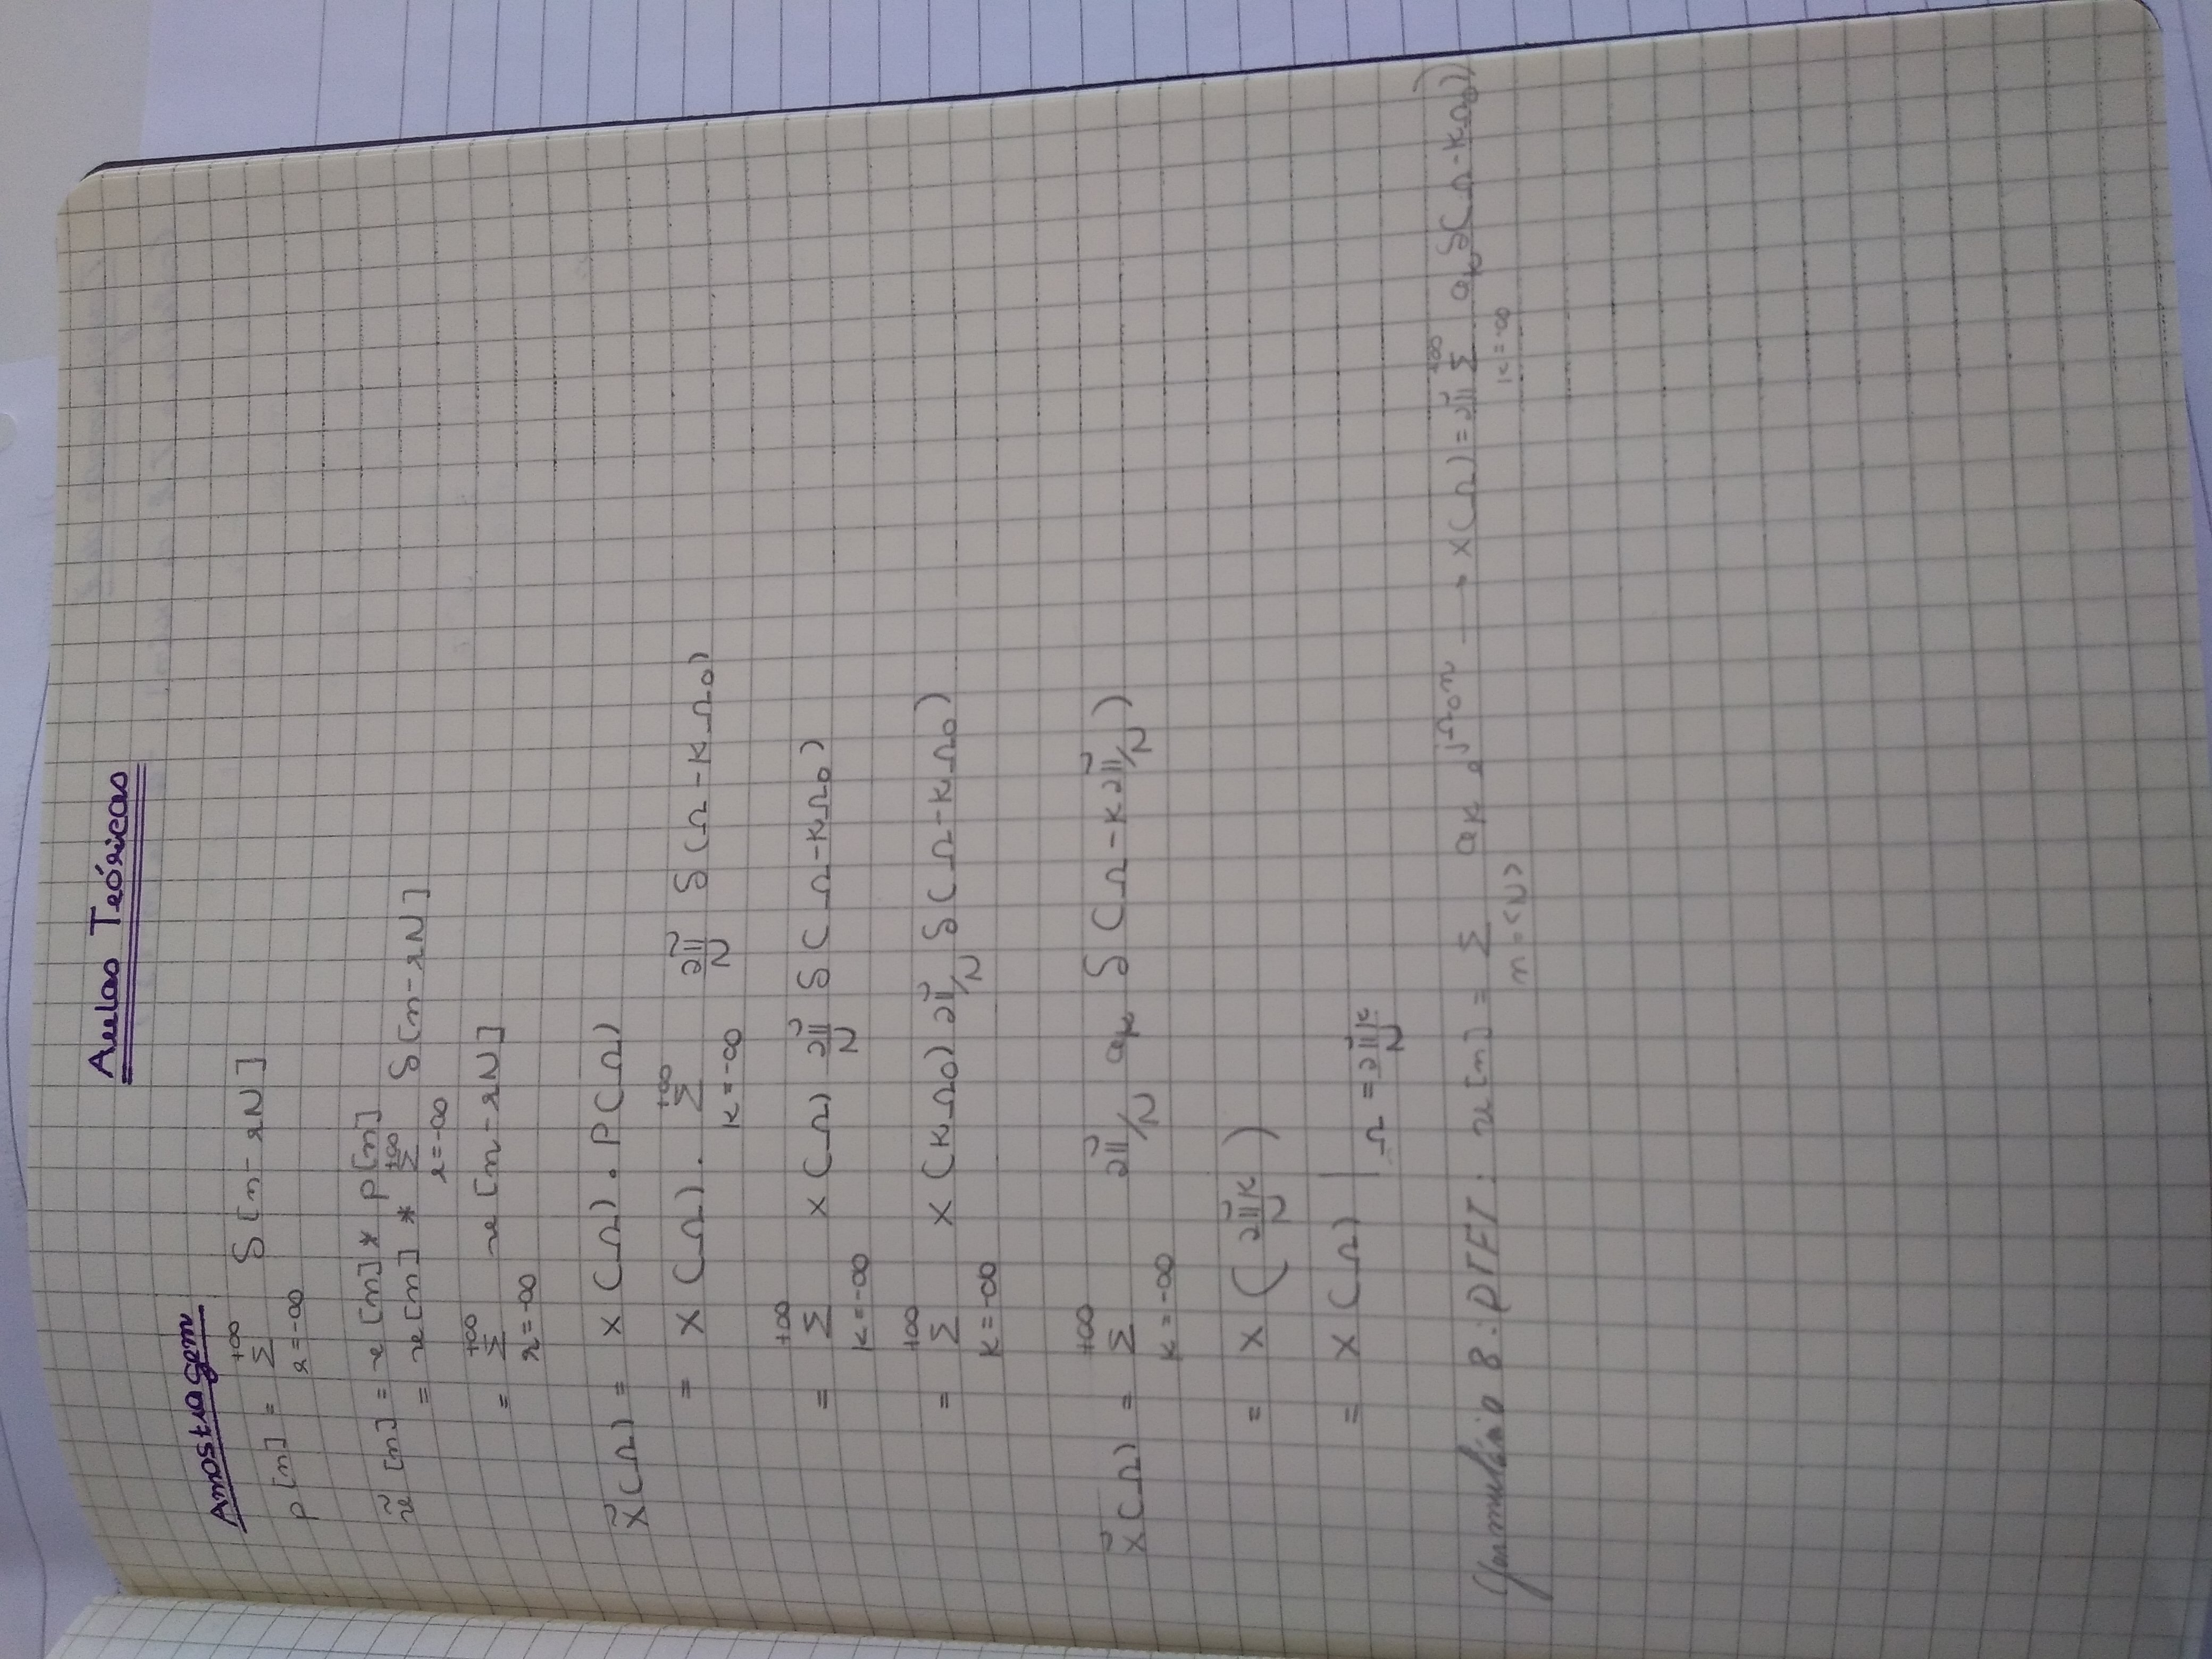 Aulas Teóricas
Amostragem
p[n] = +∞ Σ r=-∞ δ[n-rN]
x̃[n] = x[n] * p[n]
= x[n] * +∞ Σ r=-∞ δ[n-rN]
= +∞ Σ r=-∞ x[n-rN]
X̃(Ω) = X(Ω) . P(Ω)
= X(Ω) . +∞ Σ k=-∞ 2π/N δ(Ω-kΩ0)
= +∞ Σ k=-∞ X(Ω) 2π/N δ(Ω-kΩ0)
= +∞ Σ k=-∞ X(kΩ0) 2π/N δ(Ω-kΩ0)
X̃(Ω) = +∞ Σ k=-∞ 2π/N ak δ(Ω-k2π/N)
= X(2πk/N)
= X(Ω) | Ω=2πk/N
Formulário 8: DTFT: x[n] = Σ n=<N> ak e^jΩ0n → X(Ω)=2π +∞ Σ k=-∞ ak δ(Ω-kΩ0))